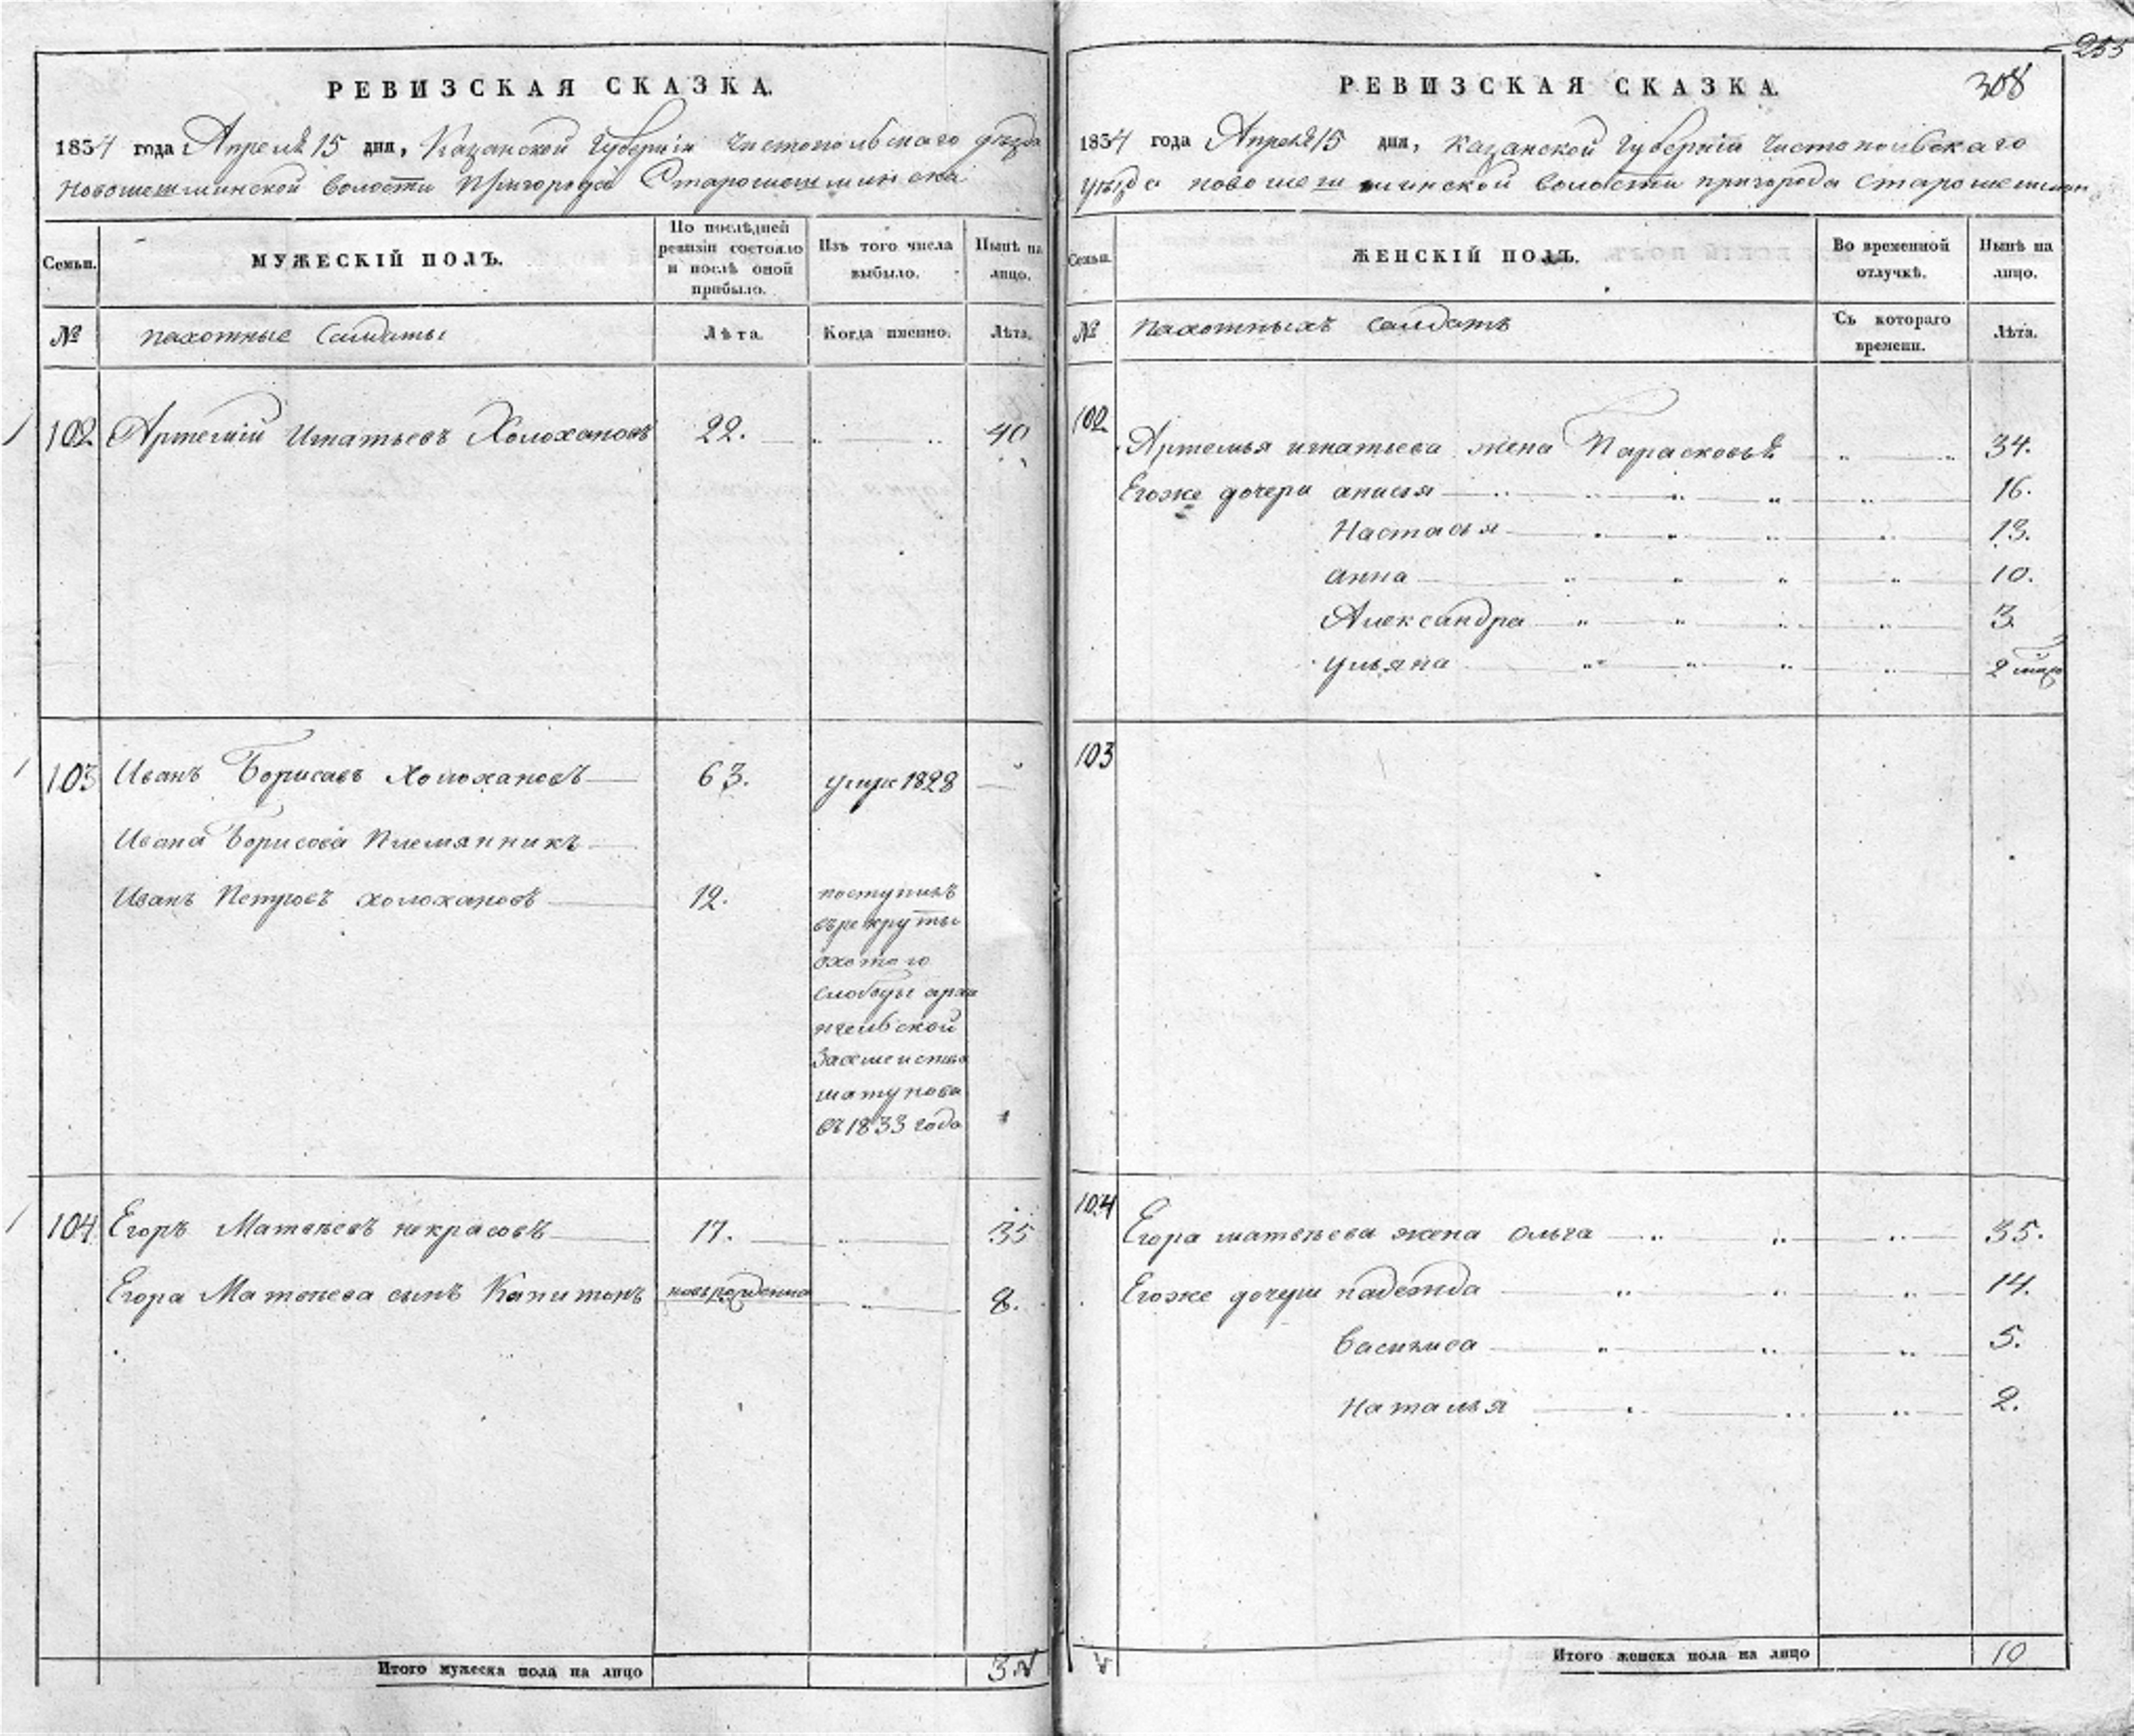 РЕВИЗСКАЯ СКАЗКА.
1834 года Апреля 15 дня, Казанской Губернiи Чистопольскаго уѣзда
Новошешминской волости пригорода Старошешминска
Семьи.
МУЖЕСКІЙ ПОЛЪ.
По послѣдней ревизіи состояло и послѣ оной прибыло.
Изъ того числа выбыло.
Нынѣ на лицо.
№
пахотные Салдаты
Лѣта.
Когда именно.
Лѣта.
102 Артемiй Игнатьевъ Холохановъ 22. 40
103 Иванъ Борисовъ Холохановъ 63. умре 1828
Ивана Борисова Племянникъ
Иванъ Петровъ холохановъ 12. поступилъ
въ рекруты
охотого
слободы архан
гельской
шатунова
въ 1833 года
104 Егоръ Матвѣевъ некрасовъ 17. 35
Егора Матвѣева сынъ Капитонъ новърожденна 8.
Итого мужеска пола на лицо 3
255
308
РЕВИЗСКАЯ СКАЗКА.
1834 года Апреля 15 дня, Казанской Губернiи Чистопольскаго
уѣзда новошешминской волости пригорода Старошешмин
Семьи.
ЖЕНСКІЙ ПОЛЪ.
Во временной отлучкѣ.
Нынѣ на лицо.
№
пахотныхъ салдатъ
Съ котораго времени.
Лѣта.
102
Артемья игнатьева жена Парасковья 34.
Егоже дочери анисья 16.
Настасья 13.
анна 10.
Александра 3.
ульяна 2
103
104
Егора матвѣева жена Ольга 35.
Егоже дочери надежда 14.
василиса 5.
Наталья 2.
Итого женска пола на лицо 10